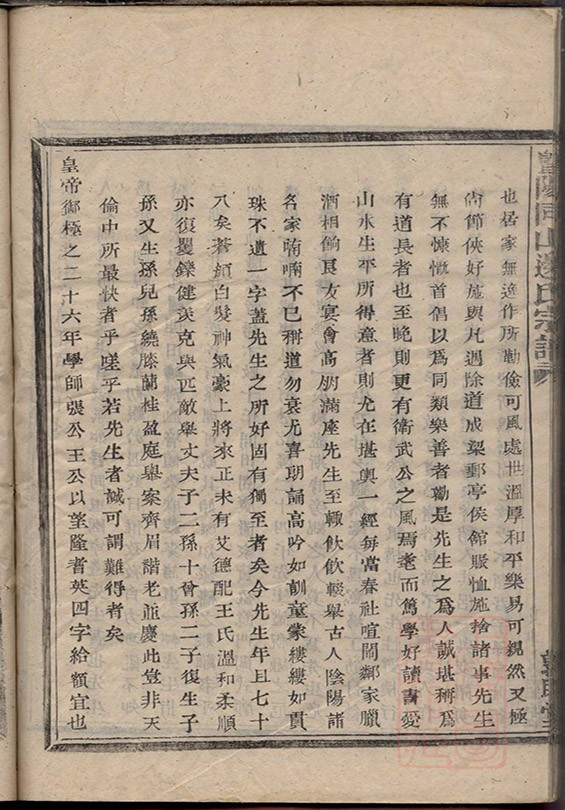 也居家無逸作所勤儉可風處世溫厚和平樂易可親然又極
尚節俠好施與凡遇除道成梁郵亭侯館賑恤施捨諸事先生
無不慷慨首倡以爲同類樂善者勸是先生之爲人誠堪稱爲
有道長者也至晚則更有衛武公之風焉耄而篤學好讀書愛
山水生平所得意者則尤在堪輿一經每當春社喧闐鄰家臘
酒相餉良友宴會高朋滿座先生至輒飲飲輟舉古人陰陽諸
名家喃喃不已稱道勿衰尤喜朗誦高吟如訓童蒙縷縷如貫
珠不遺一字蓋先生之所好固有獨至者矣今先生年且七十
八矣蒼顏白髮神氣豪上將來正未有艾德配王氏溫和柔順
亦復矍鑠健淡克與匹敵舉丈夫子二孫十曾孫二子復生子
孫又生孫兒孫繞膝蘭桂盈庭舉案齊眉諧老並慶此豈非天
倫中所最快者乎嗟乎若先生者誠可謂難得者矣
皇帝御極之二十六年學師張公王公以望隆耆英四字給額宜也